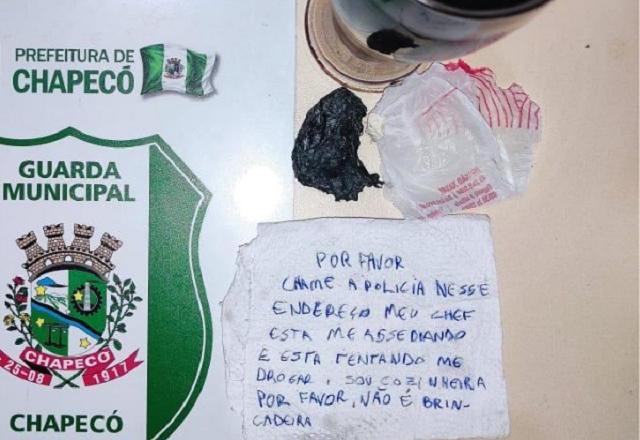 PREFEITURA DE
CHAPECÓ
GUARDA
MUNICIPAL
CHAPECÓ
25-08
1917
CHAPECÓ
POR FAVOR
CHAME A POLICIA NESSE
ENDEREÇO MEU CHEF
ESTA ME ASSEDIANDO
E ESTA TENTANDO ME
DROGAR, SOU COZINHEIRA
POR FAVOR, NÃO É BRIN-
CADEIRA